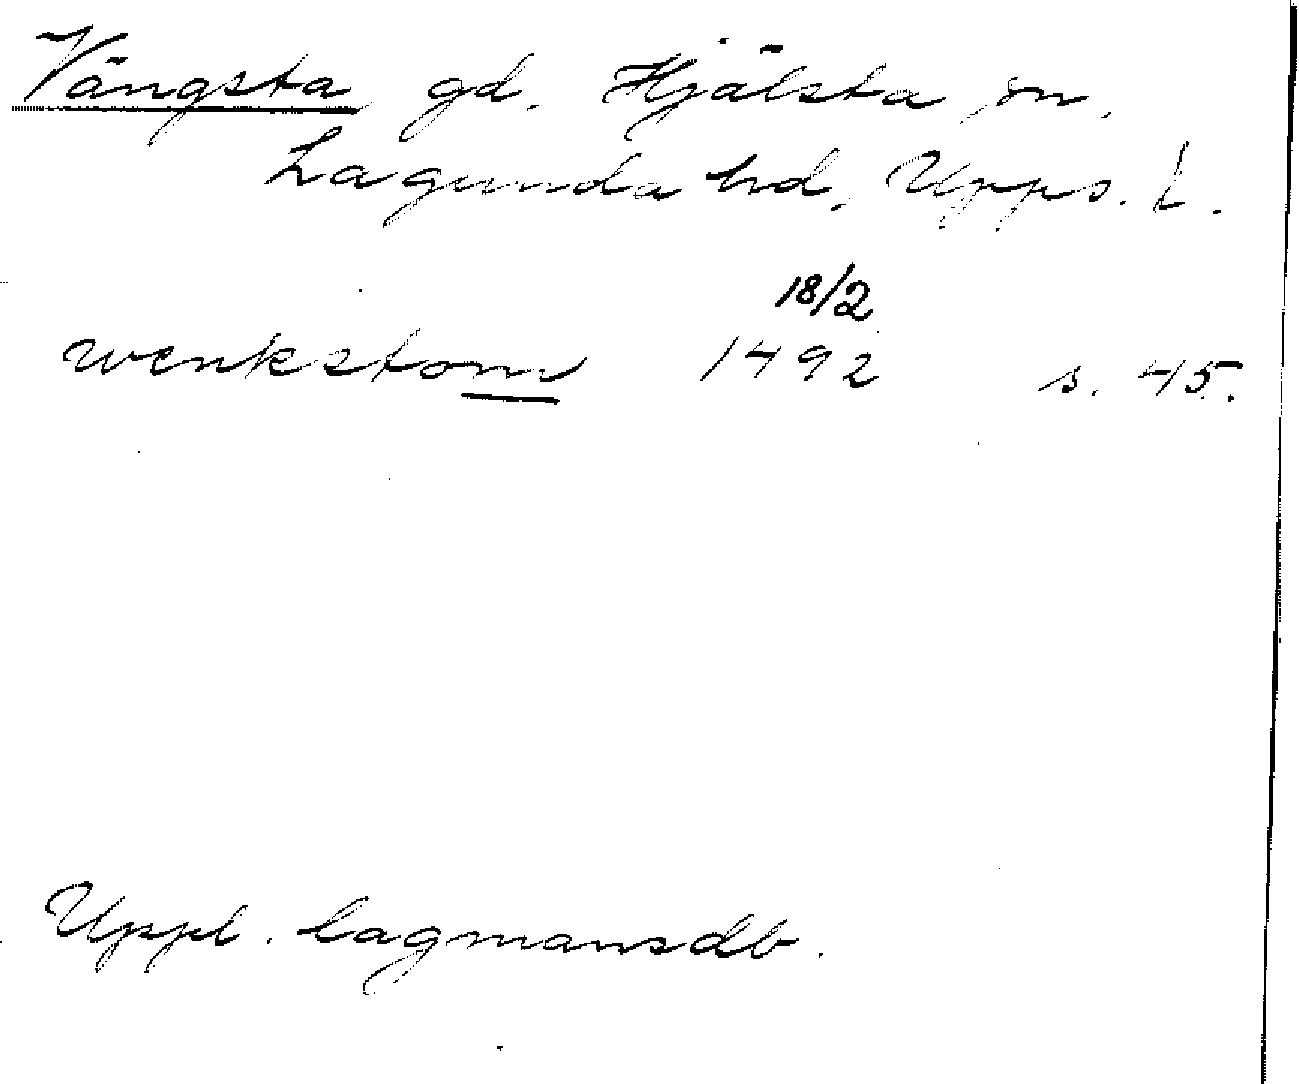 Vängsta gd. Hjälsta sn,
Lagunda hd, Upps. l.
18/2
wenkstom 1492 s. 45.
Uppl. lagmansdb.